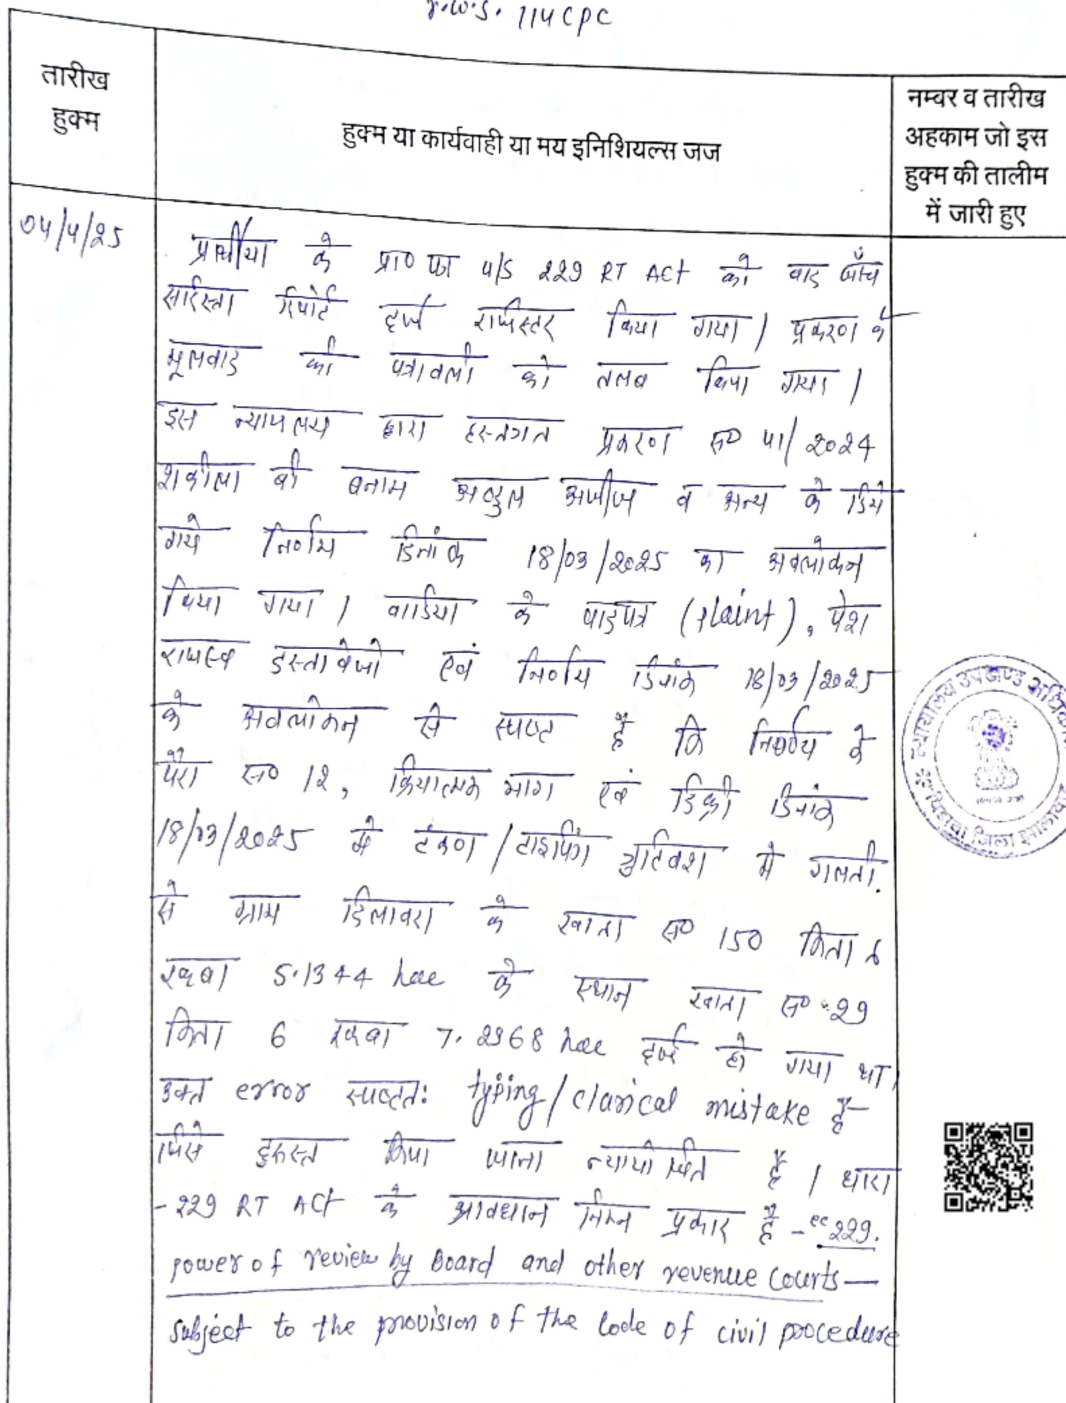 r.w.s. 114 CPC
तारीख
हुक्म
हुक्म या कार्यवाही या मय इनिशियल्स जज
नम्बर व तारीख
अहकाम जो इस
हुक्म की तालीम
में जारी हुए
04/4/25
प्रार्थीया के प्रा० पत्र u/s 229 RT Act को बाद जाँच
सरिस्ता रिपोर्ट दर्ज रजिस्टर किया गया। प्रकरण के
मूलवाद की पत्रावली को तलब किया गया।
इस न्यायालय द्वारा हस्तगत प्रकरण स० 41/2024
शकीला बी बनाम अब्दुल अजीज व अन्य के दिये
गये निर्णय दिनांक 18/03/2025 का अवलोकन
किया गया। वादिया के वादपत्र (Plaint), पेश
राजस्व दस्तावेजो एवं निर्णय दिनांक 18/03/2025
के अवलोकन से स्पष्ट है कि निर्णय के
पैरा स० 12, क्रियात्मक भाग एवं डिक्री दिनांक
18/03/2025 मे टंकण/टाइपिंग त्रुटिवश मे गलती
से ग्राम दिलावरा के खाता स० 150 किता 6
रकबा 5.1344 hac के स्थान खाता स० 29
किता 6 रकबा 7.2968 hac दर्ज हो गया था।
उक्त error स्पष्टतः typing/clarical mistake है
जिसे दुरूस्त किया जाना न्यायोचित है। धारा
-229 RT Act के प्रावधान निम्न प्रकार है - "229.
power of review by Board and other revenue Courts—
subject to the provision of the Code of civil procedure
न्यायालय उपखण्ड अधिकारी
पिडावा जिला झालावाड़